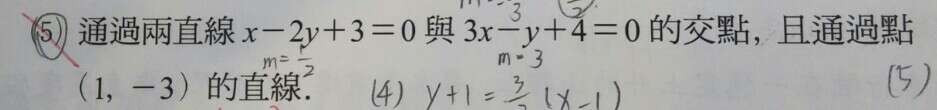 (5) 通過兩直線 x－2y＋3＝0 與 3x－y＋4＝0 的交點，且通過點
m=1/2 m=3
(1, －3) 的直線.
(4) y+1= (x-1) (5)